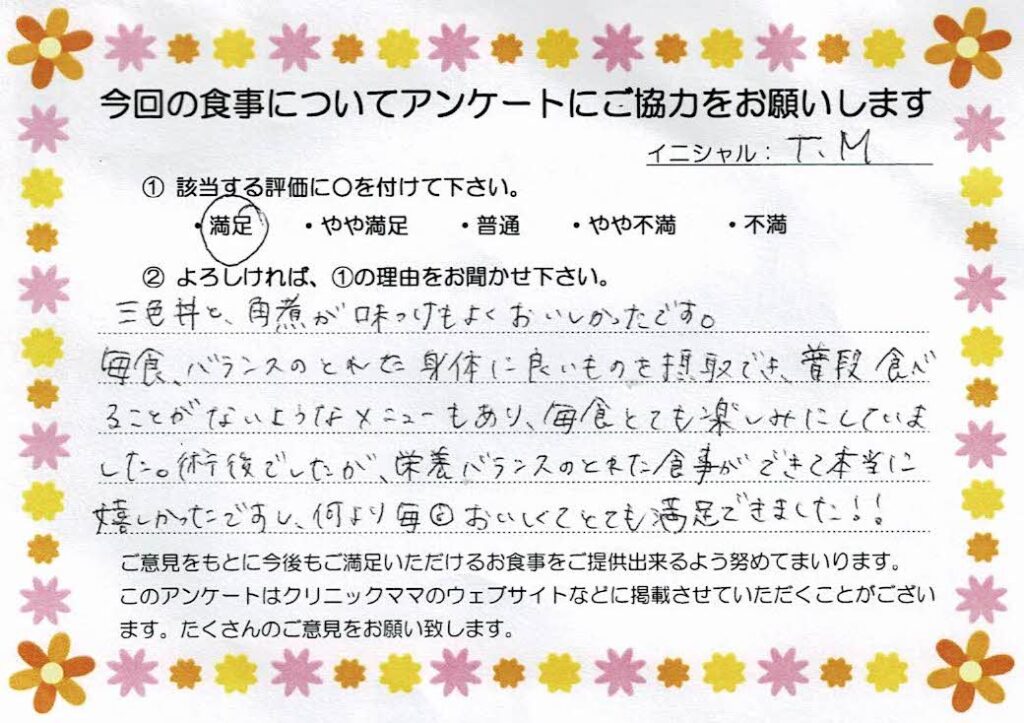 今回の食事についてアンケートにご協力をお願いします
イニシャル： T.M
① 該当する評価に〇を付けて下さい。
・満足 ・やや満足 ・普通 ・やや不満 ・不満
② よろしければ、①の理由をお聞かせ下さい。
三色丼と、角煮が味つけもよくおいしかったです。
毎食、バランスのとれた身体に良いものを摂取でき、普段食べ
ることがないようなメニューもあり、毎食とても楽しみにしていま
した。術後でしたが、栄養バランスのとれた食事ができて本当に
嬉しかったですし、何より毎回おいしくてとても満足できました!!
ご意見をもとに今後もご満足いただけるお食事をご提供出来るよう努めてまいります。
このアンケートはクリニックママのウェブサイトなどに掲載させていただくことがござい
ます。たくさんのご意見をお願い致します。